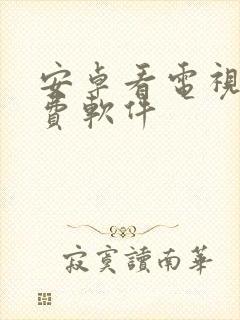 安卓看電視
費軟件
寂寞讀南華